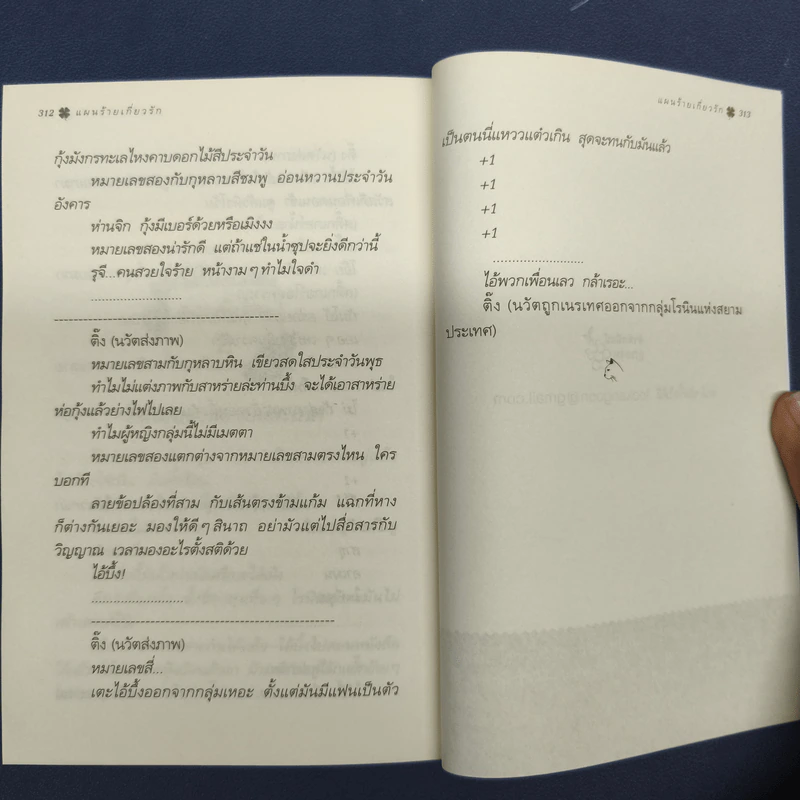 312 แผนร้ายเกี่ยวรัก
กุ้งมังกรทะเลไหงคาบดอกไม้สีประจำวัน
หมายเลขสองกับกุหลาบสีชมพู อ่อนหวานประจำวัน
อังคาร
ห่านจิก กุ้งมีเบอร์ด้วยหรือเมิงงง
หมายเลขสองน่ารักดี แต่ถ้าแช่ในน้ำซุปจะยิ่งดีกว่านี้
รุจี...คนสวยใจร้าย หน้างามๆ ทำไมใจดำ
........................
------------------------------------------------
ติ๊ง (นวัตส่งภาพ)
หมายเลขสามกับกุหลาบหิน เขียวสดใสประจำวันพุธ
ทำไมไม่แต่งภาพกับสาหร่ายล่ะท่านบึ้ง จะได้เอาสาหร่าย
ห่อกุ้งแล้วย่างไฟไปเลย
ทำไมผู้หญิงกลุ่มนี้ไม่มีเมตตา
หมายเลขสองแตกต่างจากหมายเลขสามตรงไหน ใคร
บอกที
ลายข้อปล้องที่สาม กับเส้นตรงข้ามแก้ม แฉกที่หาง
ก็ต่างกันเยอะ มองให้ดีๆ สินาถ อย่ามัวแต่ไปสื่อสารกับ
วิญญาณ เวลามองอะไรตั้งสติด้วย
ไอ้บึ้ง!
........................
------------------------------------------------
ติ๊ง (นวัตส่งภาพ)
หมายเลขสี่...
เตะไอ้บึ้งออกจากกลุ่มเหอะ ตั้งแต่มันมีแฟนเป็นตัว
แผนร้ายเกี่ยวรัก 313
เป็นตนนี่แหววแต๋วเกิน สุดจะทนกับมันแล้ว
+1
+1
+1
+1
........................
ไอ้พวกเพื่อนเลว กล้าเรอะ...
ติ๊ง (นวัตถูกเนรเทศออกจากกลุ่มโรนินแห่งสยาม
ประเทศ)